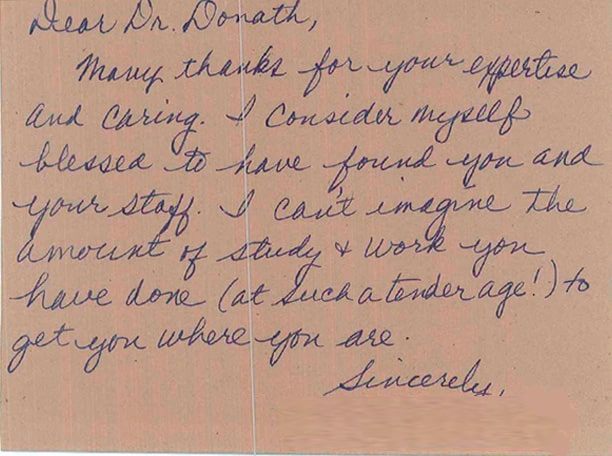 Dear Dr. Donath,
Many thanks for your expertise
and caring. I consider myself
blessed to have found you and
your staff. I can't imagine the
amount of study + work you
have done (at such a tender age!) to
get you where you are.
Sincerely,